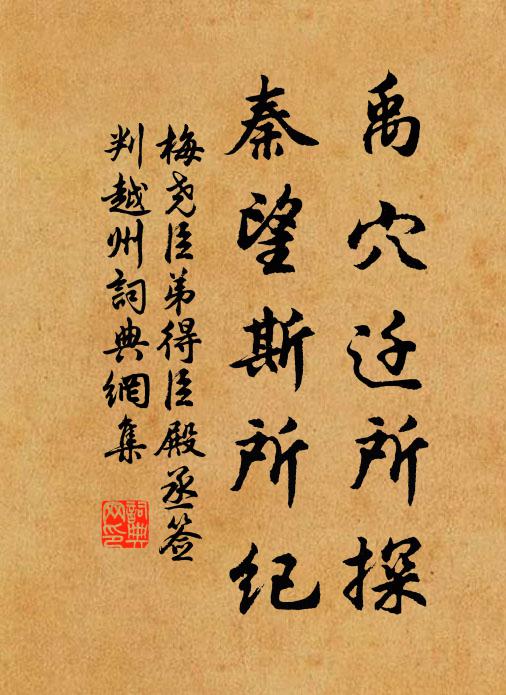 禹穴迁所探
秦望斯所纪
梅尧臣弟得臣殿丞签
判越州詞典網集
詞典
网印